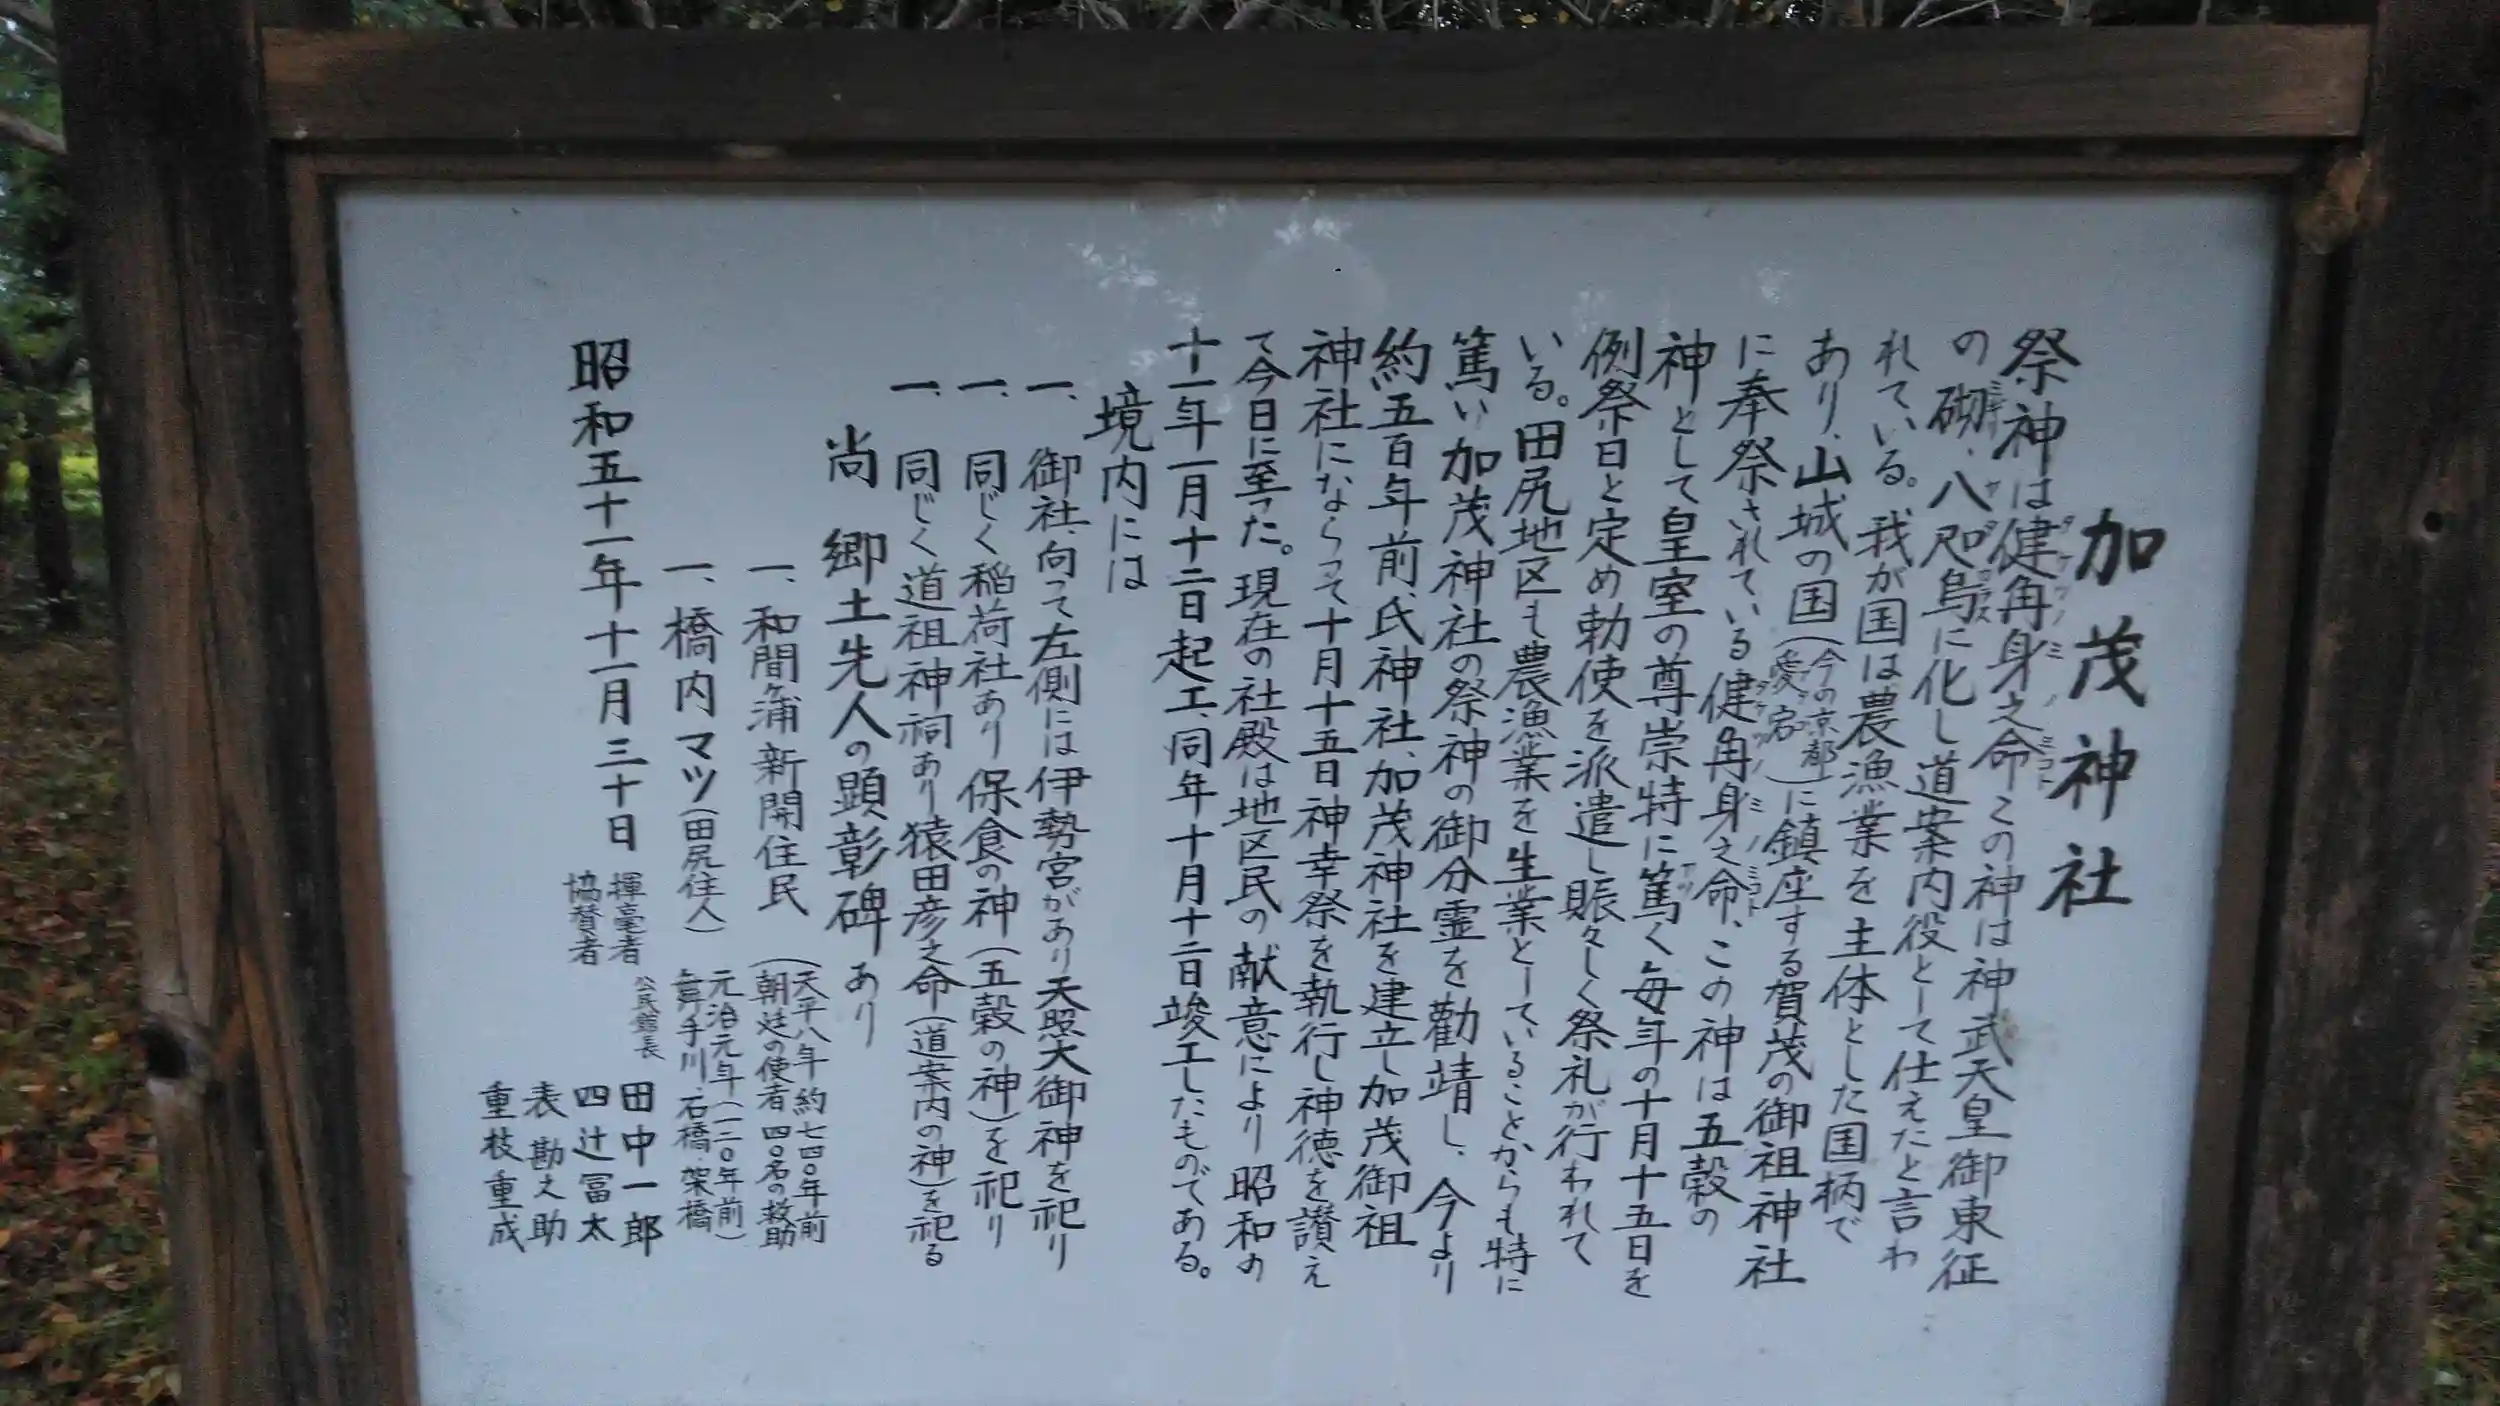 加茂神社
祭神は健角身之命この神は神武天皇御東征
の砌、八咫烏に化し道案内役として仕えたと言わ
れている。我が国は農漁業を主体とした国柄で
あり、山城の国(今の京都愛宕)に鎮座する賀茂の御祖神社
に奉祭されている健角身之命、この神は五穀の
神として皇室の尊崇特に篤く毎年の十月十五日を
例祭日と定め勅使を派遣し賑々しく祭礼が行われて
いる。田尻地区も農漁業を生業としていることからも特に
篤い加茂神社の祭神の御分霊を勸靖し、今より
約五百年前、氏神社、加茂神社を建立し加茂御祖
神社にならって十月十五日神幸祭を執行し神徳を讃え
て今日に至った。現在の社殿は地区民の献意により昭和の
十一年一月十二日起工、同年十月十二日竣工したものである。
境内には
一、御社、向って左側には伊勢宮があり天照大御神を祀り
一、同じく稲荷社あり保食の神(五穀の神)を祀り
一、同じく道祖神祠あり猿田彦之命(道案内の神)を祀る
尚 郷土先人の顕彰碑あり
一、和間浦新開住民(天平八年約七四〇年前
朝廷の使者四〇名の救助
一、橋内マツ(田尻住人) 元治元年(一二〇年前)
舞手川、石橋、架橋
昭和五十一年十一月三十日
揮毫者 公民館長 田中一郎
協賛者 四辻冨太
表勘之助
重枝重成